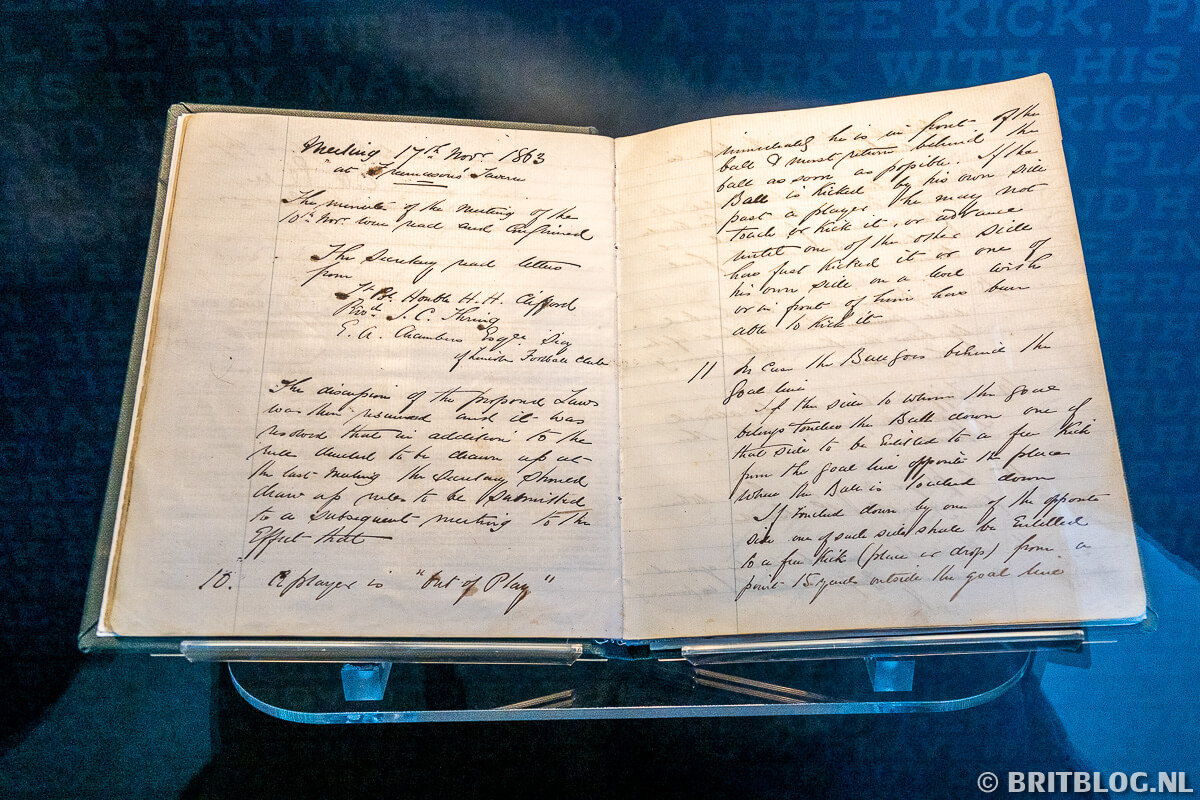 L BE ENTITLED TO A FREE KICK, P
MS IT BY MA MARK WITH HIS
KICK
Meeting 17th Novr 1863
at Freemasons Tavern
The minutes of the Meeting of the
10th Novr were read and confirmed
The Secretary read letters
from
Honble H. H. Clifford
Revd J. C. Thring
E. A. Chambers Esqre Sec
of Lincoln Football Club
The discussion of the proposed Laws
was then resumed and it was
resolved that in addition to the
rules decided to be drawn up at
the last Meeting the Secretary should
draw up rules to be submitted
to a subsequent meeting to the
Effect that
10. A player is "Out of Play"
immediately he is in front of the
ball & must return behind the
ball as soon as possible. If the
Ball is kicked by his own side
past a player he may not
touch or kick it, or advance
until one of the other side
has first kicked it or one of
his own side on a level with
or in front of him has been
able to kick it
11 In case the Ball goes behind the
Goal line
If the side to whom the Goal
belongs touches the Ball down one of
that side to be Entitled to a free Kick
from the Goal line opposite the place
where the Ball is touched down
If touched down by one of the opposite
side one of such side shall be Entitled
to a free Kick (place or drop) from a
point 15 yards outside the goal line
© BRITBLOG.NL